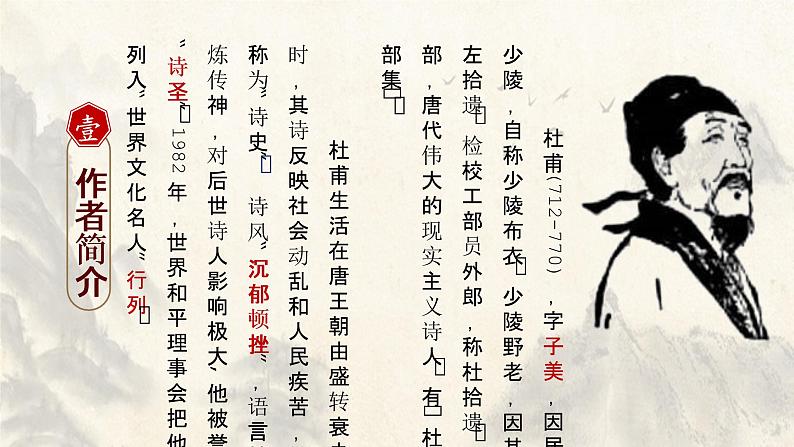 壹
作者简介
杜甫(712-770),字子美,因
少陵,自称少陵布衣□少陵野老,因其
左拾遗□检校工部员外郎,称杜拾遗□
部,唐代伟大的现实主义诗人□有□杜
部集□□
杜甫生活在唐王朝由盛转衰
时,其诗反映社会动乱和人民疾苦,
称为“诗史”□诗风“沉郁顿挫”,语言
炼传神,对后世诗人影响极大、他被誉
“诗圣”□1982年,世界和平理事会把他
列入“世界文化名人”行列□